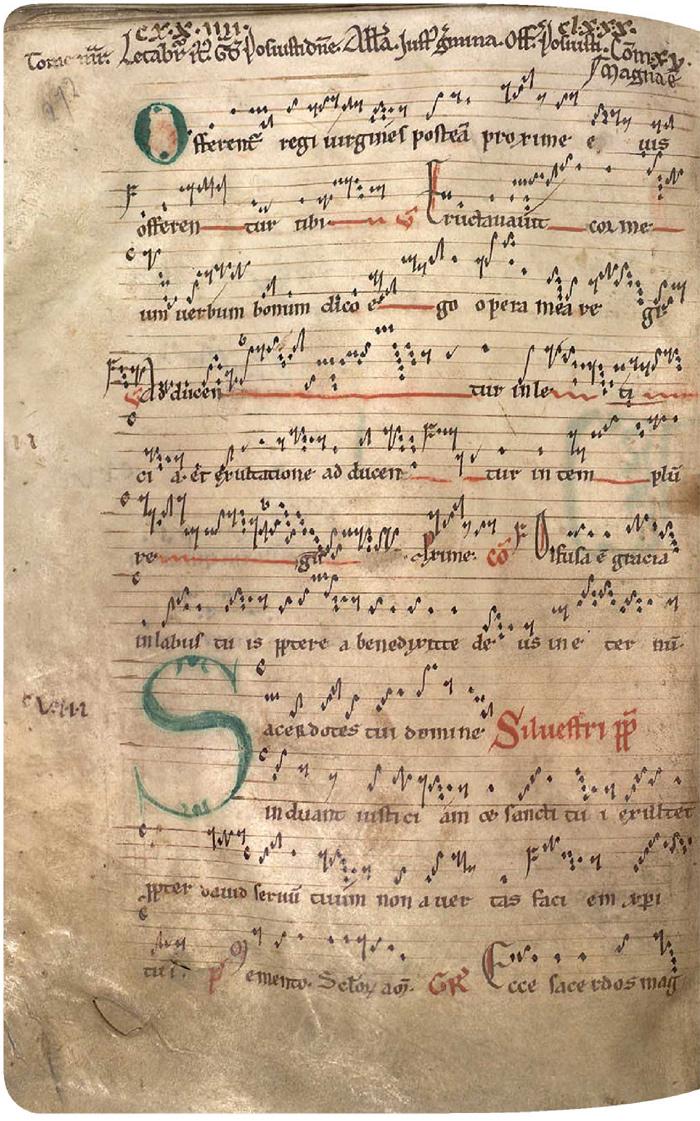 c.x.x.iiii. clxxx.
Letabr Posuistidne. Alla. Just gmina. Off. Posuisti. Com xv
Magna ē
Offerent regi uirgines postea proxime e ius
offeren tur tibi ℣ Eructauauit cor me
um uerbum bonum dico e go opera mea re gi
℣ Adducen tur in le ti
ci a et exultatione adducen tur in tem plū
re gis prime. cō Difusa ē gracia
inlabiis tu is ppterea benedixitte de us in e ter nū
Sacerdotes tui domine Siluestri pp
induant iustici am et sancti tu i exultet
ppter dauid seruū tuum non auer tas faci em xpi
tui. p Memento. GR Ecce sacerdos mag